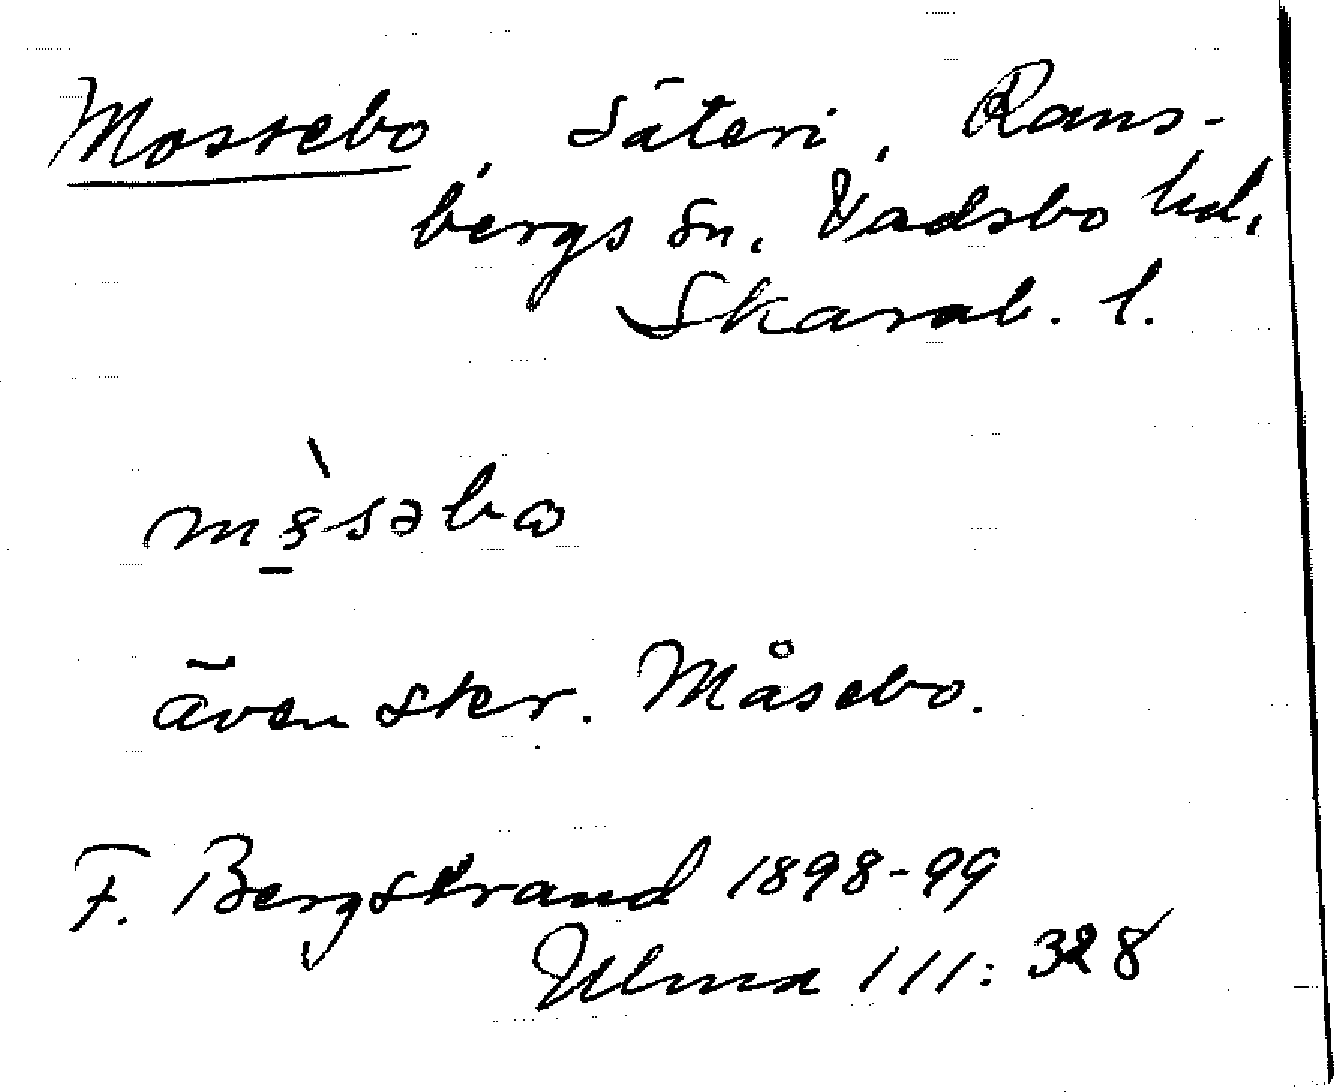 Mossebo, Säteri, Rans-
bergs sn. Vadsbo hd.
Skarab. l.
även skr. Måsebo.
F. Bergstrand 1898-99
Ulma 111: 328